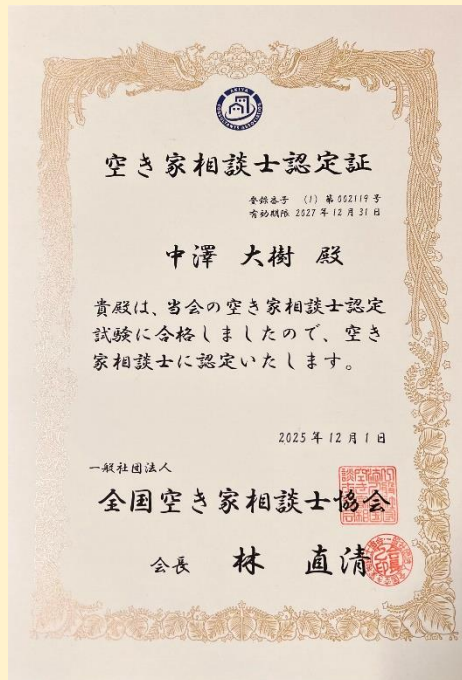 空き家相談士認定証
登録番号 (1) 第002119号
有効期限 2027年12月31日
中澤 大樹 殿
貴殿は、当会の空き家相談士認定
試験に合格しましたので、空き
家相談士に認定いたします。
2025年12月1日
一般社団法人
全国空き家相談士協会
会長 林 直清